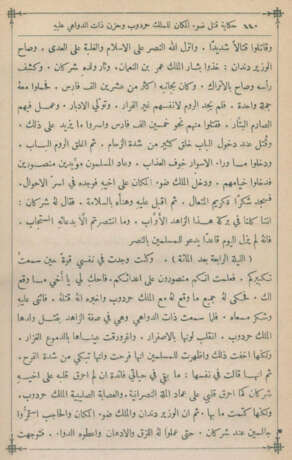 ٤٤٠ حكاية قتل ضوء المكان للملك حردوب وحزن ذات الدواهي عليه
وقاتلوا قتالاً شديدًا. وانزل الله النصر على الاسلام والغلبة على العدى. وصاح
الوزير دندان: خذوا بثار الملك عمر بن النعمان. وثار ولده شركان. وكشف
رأسه وصاح بالاتراك. وكان بجانبه اكثر من عشرين الف فارس. فحملوا معه
حملة واحدة. فلم يجد الروم لانفسهم غير الفرار. وتولّي الادبار. وعمل فيهم
الصارم البتّار. فقتلوا منهم نحو خمسين الف فارس واسروا ما يزيد على ذلك.
وقُتل عند دخول الباب خلق كثير من شدة الزحام. ثم اغلق الروم الباب.
ودخلوا ما ورا. الاسوار خوف العذاب. وعاد المسلمون مؤيدين منصورين
فدخلوا خيامهم. ودخل الملك ضوء المكان على اخيه فوجده في اسرّ الاحوال.
فسجد شكرًا للكريم المتعال. ثم اقبل عليه وهنأه بالسلامة. فقال له شركان:
اننا كلنا في بركة هذا الزاهد الأوّاب. وما انتصرتم الّا بدعائه المستجاب.
فانه لم يزل اليوم قاعدًا يدعو للمسلمين بالنصر
(الليلة الرابعة بعد المائة). وكنت وجدت في نفسي قوة حين سمعت
تكبيركم. فعلمت انكم منصورون على اعدائكم. فاحكِ لي يا أخي ما وقع
لك. فحكى له جميع ما وقع له مع الملك حردوب واخبره انه قتله. فاثنى عليه
وشكر مسعاه. فلما سمعت ذات الدواهي وهي في صفة الزاهد بقتل ولدها
الملك حردوب. انقلب لونها بالاصفرار. واغرورقت عيناها بالدموع الغزار.
ولكنها اخفت ذلك واظهرت للمسلمين انها فرحت وانها تبكي من شدة الفرح.
ثم انها قالت في نفسها: ما بقي في حياتي فائدة ان لم احرق قلبه على اخيه
شركان كما احرق قلبي على عماد الملة النصرانية. والعصابة الصليبية الملك حردوب.
ولكنها كتمت ما بها. ثم ان الوزير دندان والملك ضوء المكان والحاجب استمرّوا
جالسين عند شركان. حتى عملوا له اللزق والادهان واعطوه الدواء. فتوجهت